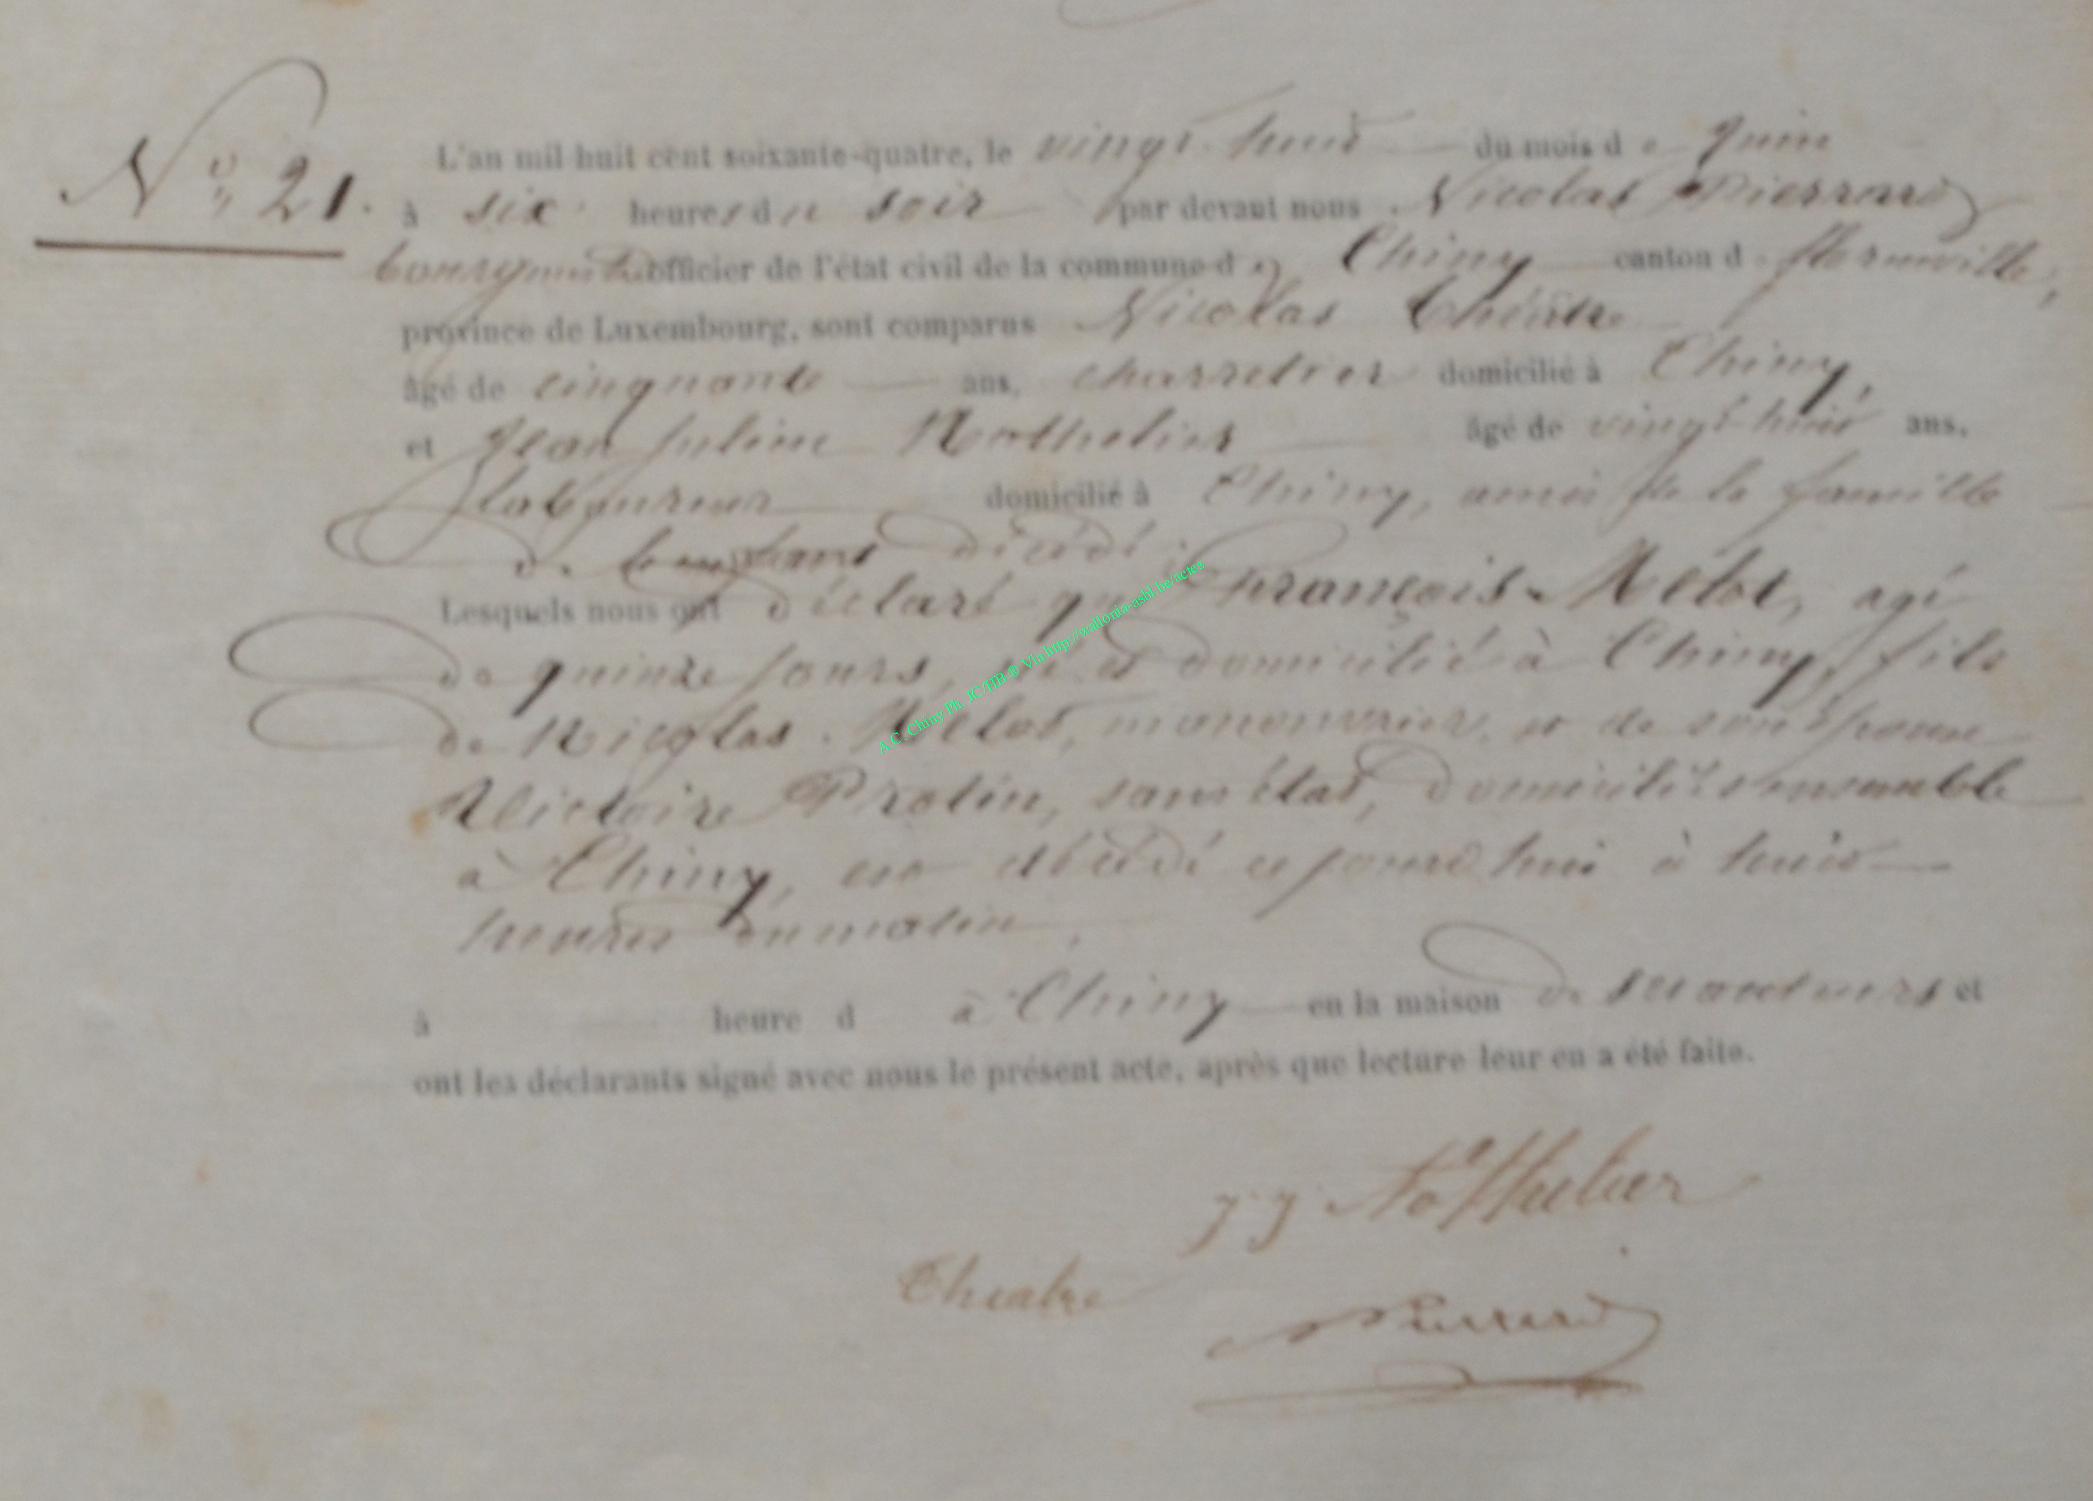 N° 21.
L'an mil huit cent soixante-quatre, le vingt-huit du mois de Juin
à six heures du soir par devant nous Nicolas Pierrard
bourgmestre officier de l'état civil de la commune de Chiny canton de Florenville,
province de Luxembourg, sont comparus Nicolas Théâtre
âgé de cinquante ans, charretier domicilié à Chiny,
et Jean Julien Nothelier âgé de vingt-huit ans,
laboureur domicilié à Chiny, amis de la famille
de décédé.
Lesquels nous ont déclaré que François Mélot, agé
de quinze jours, né et domicilié à Chiny, fils
de Nicolas Mélot, manouvrier, et de son épouse
Victoire Protin, sans état, domiciliés ensemble
à Chiny, est décédé cejourd'hui à huit
heures du matin,
à heure d à Chiny en la maison de ses auteurs et
ont les déclarants signé avec nous le présent acte, après que lecture leur en a été faite.
J J Nothelier
Théatre
N Pierrard
A.C. Chiny Ph. JC/HB @ Via http://wallonia-asbl.be/actes